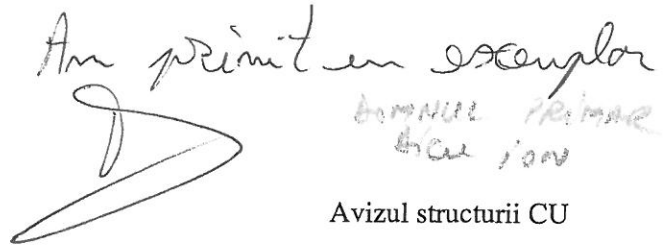 Am primit un exemplar
DOMNUL PRIMAR
Dicu ion
Avizul structurii CU